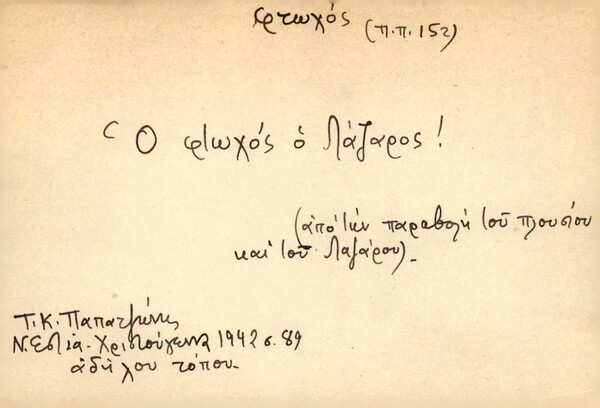 φτωχός (π.π. 152)
Ὁ φτωχός ὁ Λάζαρος!
(ἀπό τήν παραβολή τοῦ πλουσίου
καί τοῦ Λαζάρου).
Τ.Κ. Παπατζώνης
Ν. Εστία - Χριστούγεννα 1942 σ. 89
ἀδήλου τόπου.